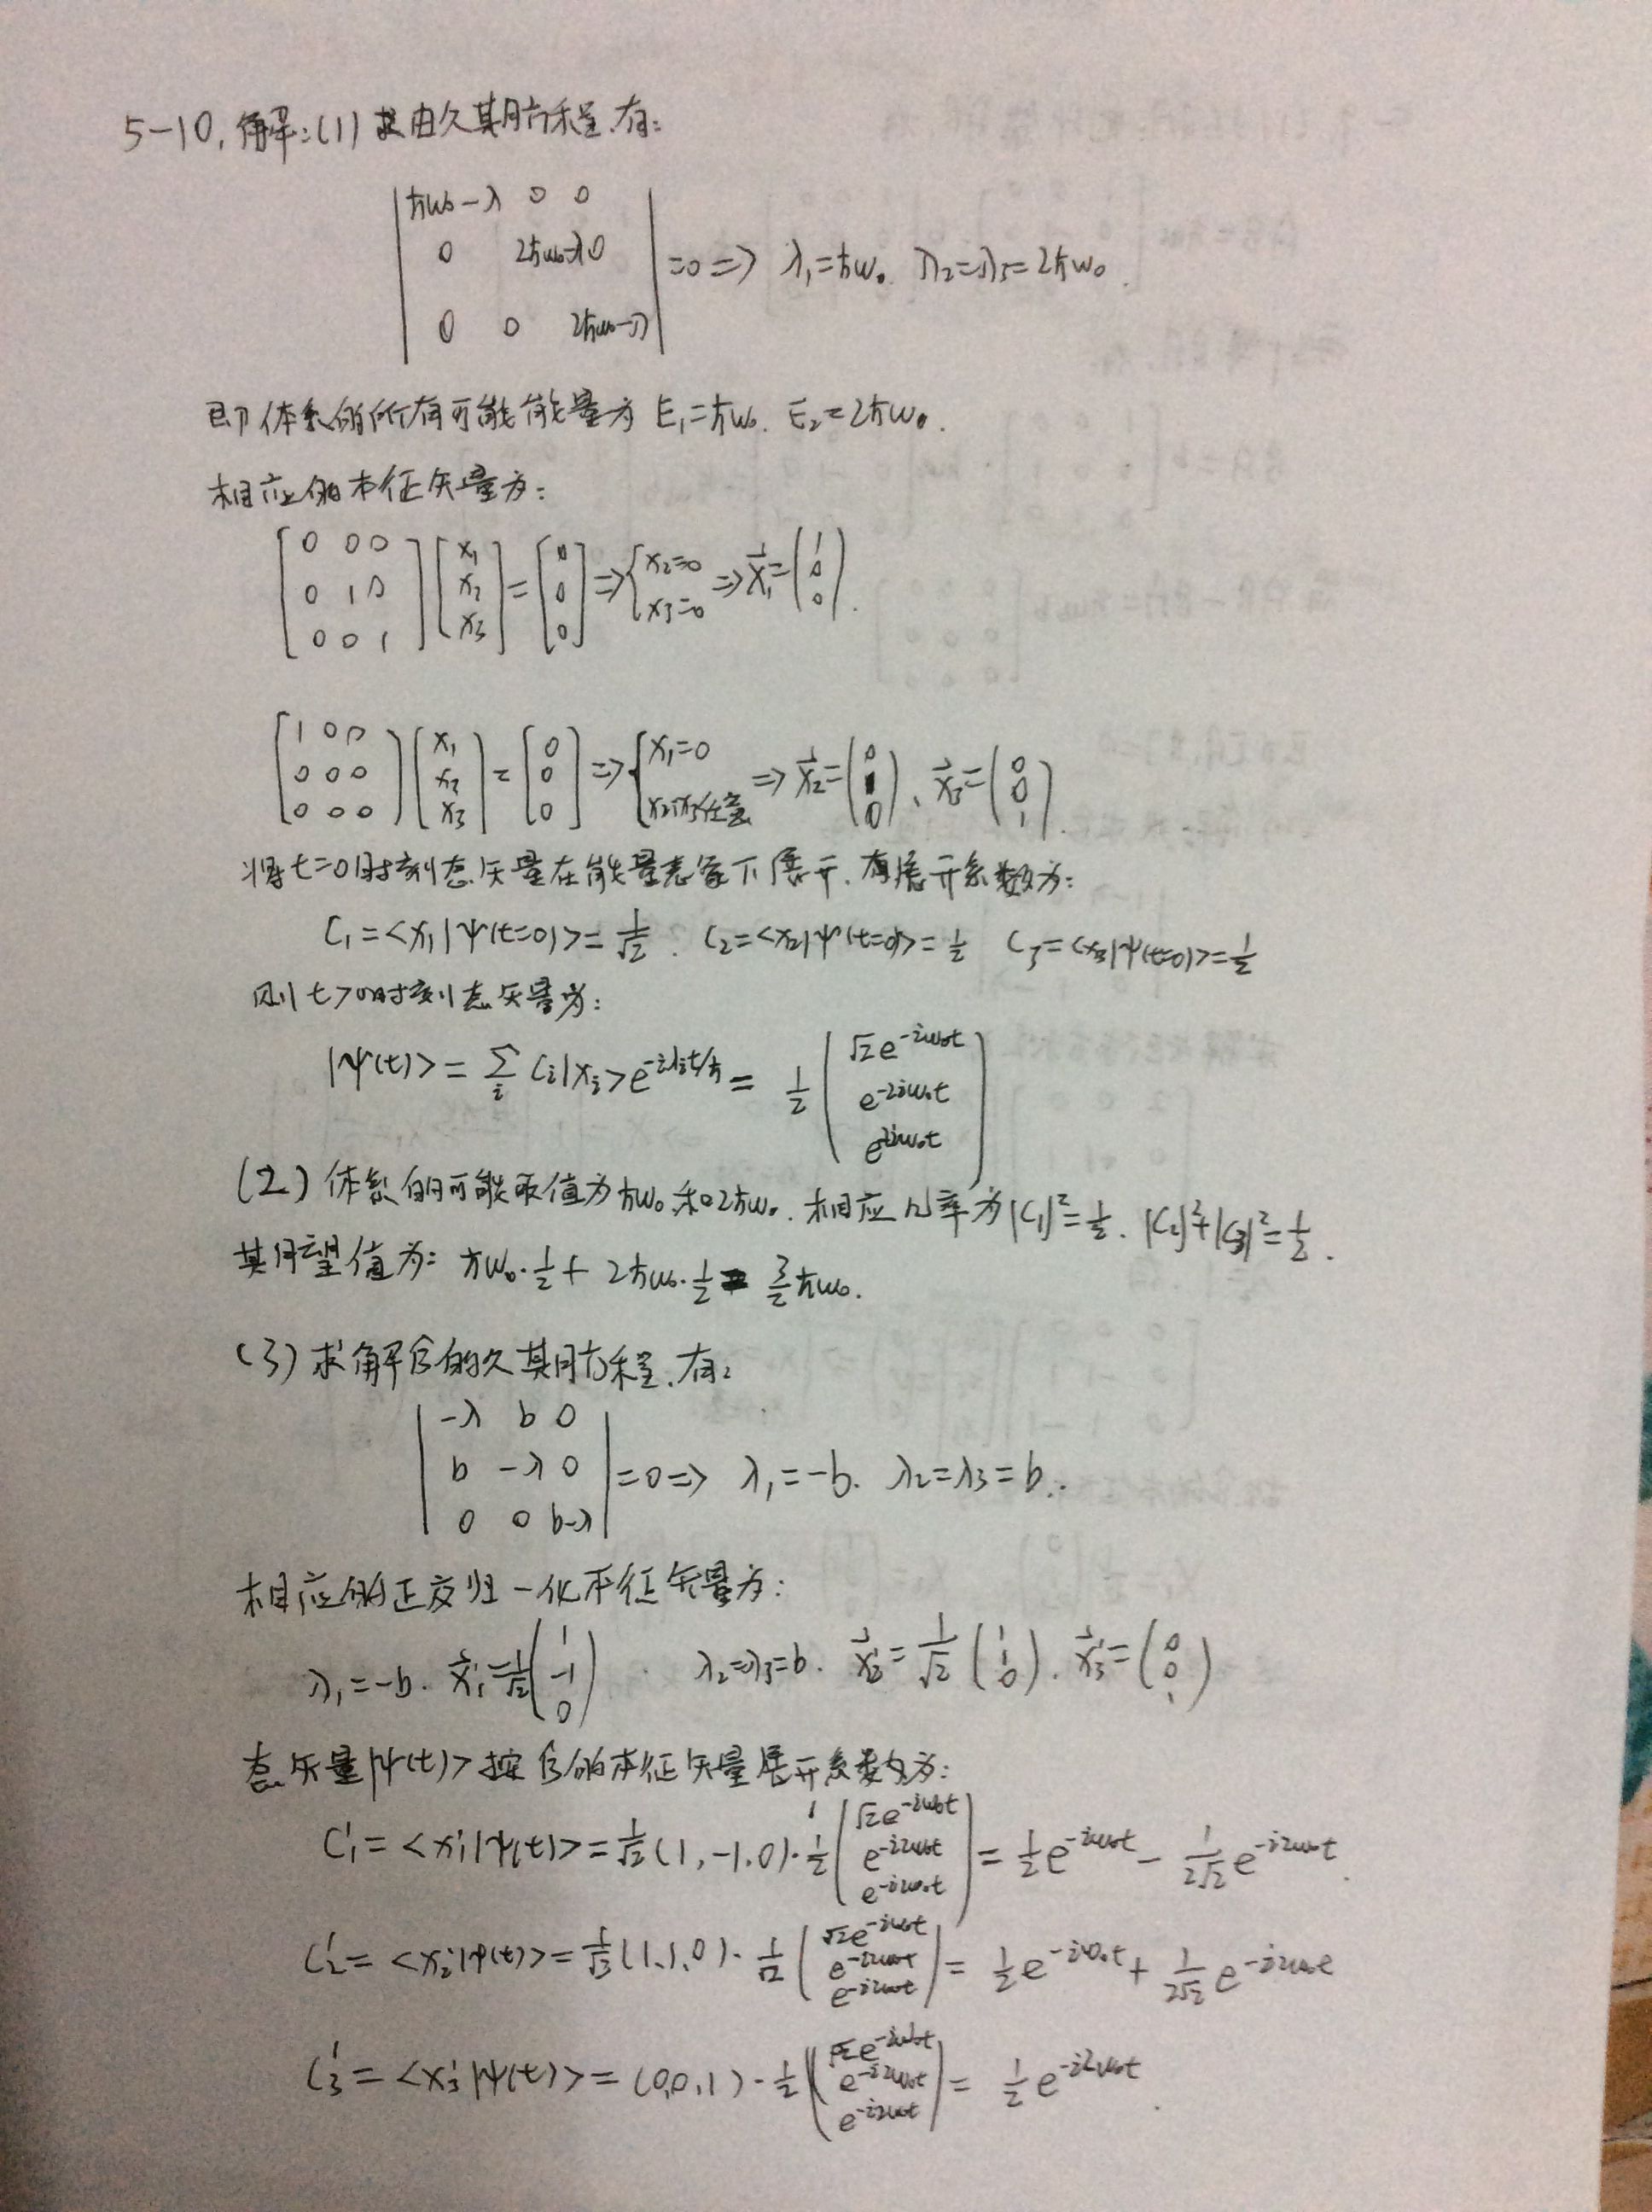 5-10. 解:(1) 由久期方程.有:
| ħω₀-λ 0 0 |
| 0 2ħω₀-λ 0 | =0 => λ₁=ħω₀. λ₂=λ₃=2ħω₀.
| 0 0 2ħω₀-λ |
即体系的所有可能能量为 E₁=ħω₀. E₂=2ħω₀.
相应的本征矢量为:
[0 0 0; 0 1 0; 0 0 1] [x₁; x₂; x₃] = [0; 0; 0] => {x₂=0 x₃=0 => x⃗₁=(1; 0; 0).
[1 0 0; 0 0 0; 0 0 0] [x₁; x₂; x₃] = [0; 0; 0] => {x₁=0 x₂,x₃任意 => x⃗₂=(0; 1; 0)、x⃗₃=(0; 0; 1).
将t=0时刻态矢量在能量表象下展开.有展开系数为:
C₁=<x₁|ψ(t=0)>=1/√2. C₂=<x₂|ψ(t=0)>=1/2 C₃=<x₃|ψ(t=0)>=1/2
则t>0时刻态矢量为:
|ψ(t)> = Σᵢ Cᵢ|xᵢ>e^{-iλᵢt/ħ} = 1/2 (√2e^{-iω₀t}; e^{-2iω₀t}; e^{-2iω₀t})
(2) 体系的可能取值为ħω₀和2ħω₀. 相应几率为|C₁|²=1/2. |C₂|²+|C₃|²=1/2.
其期望值为: ħω₀·1/2 + 2ħω₀·1/2 = 3/2 ħω₀.
(3) 求解B̂的久期方程.有:
| -λ b 0 |
| b -λ 0 | =0 => λ₁=-b. λ₂=λ₃=b.
| 0 0 b-λ |
相应的正交归一化本征矢量为:
λ₁=-b. x⃗₁'=1/√2 (1; -1; 0) λ₂=λ₃=b. x⃗₂'=1/√2 (1; 1; 0). x⃗₃'=(0; 0; 1)
态矢量|ψ(t)>按B̂的本征矢量展开系数为:
C₁'=<x₁'|ψ(t)>=1/√2 (1,-1,0)·1/2 (√2e^{-iω₀t}; e^{-i2ω₀t}; e^{-i2ω₀t}) = 1/2 e^{-iω₀t} - 1/(2√2) e^{-i2ω₀t}.
C₂'=<x₂'|ψ(t)>=1/√2 (1,1,0)·1/√2 (√2e^{-iω₀t}; e^{-i2ω₀t}; e^{-i2ω₀t}) = 1/2 e^{-iω₀t} + 1/(2√2) e^{-i2ω₀t}
C₃'=<x₃'|ψ(t)>=(0,0,1)·1/2 (√2e^{-iω₀t}; e^{-i2ω₀t}; e^{-i2ω₀t}) = 1/2 e^{-i2ω₀t}.